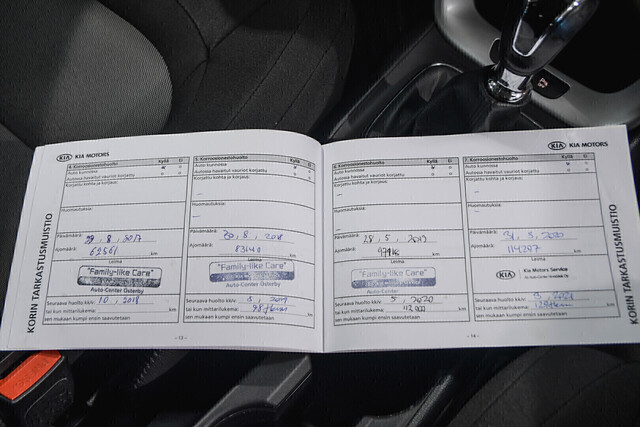 KIA KIA MOTORS
KORIN TARKASTUSMUISTIO
4. Korroosionestohuolto Kyllä Ei
Auto kunnossa
Autossa havaitut vauriot korjattu
Korjattu kohta ja korjaus:
Huomautuksia:
Päivämäärä: 29, 8, 2017
Ajomäärä: km
Leima
"Family-like Care"
Auto-Center Osterby
Seuraava huolto kk/v: 10, 2018
tai kun mittarilukema: km
sen mukaan kumpi ensin saavutetaan
- 13 -
5. Korroosionestohuolto Kyllä Ei
Auto kunnossa
Autossa havaitut vauriot korjattu
Korjattu kohta ja korjaus:
Huomautuksia:
Päivämäärä: 8, 2018
Ajomäärä: km
Leima
"Family-like Care"
Auto-Center Osterby
Seuraava huolto kk/v: 2019
tai kun mittarilukema:
sen mukaan kumpi ensin saavutetaan
KIA KIA MOTORS
KORIN TARKASTUSMUISTIO
6. Korroosionestohuolto Kyllä Ei
Auto kunnossa
Autossa havaitut vauriot korjattu
Korjattu kohta ja korjaus:
Huomautuksia:
Päivämäärä: 28, 5, 2019
Ajomäärä: km
Leima
"Family-like Care"
Auto-Center Osterby
Seuraava huolto kk/v: 5, 2020
tai kun mittarilukema: 112 000 km
sen mukaan kumpi ensin saavutetaan
- 14 -
7. Korroosionestohuolto Kyllä Ei
Auto kunnossa
Autossa havaitut vauriot korjattu
Korjattu kohta ja korjaus:
Huomautuksia:
Päivämäärä: 5, 2020
Ajomäärä: km
Leima
KIA Kia Motors Service
Seuraava huolto kk/v:
tai kun mittarilukema:
sen mukaan kumpi ensin saavutetaan